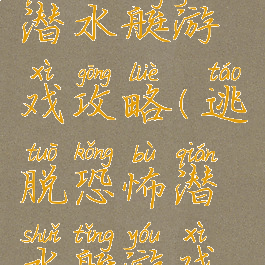 潜水艇游
xì gōng lüè táo
戏攻略(逃
tuō kǒng bù qián
脱恐怖潜
shuǐ tǐng yóu xì
水艇游戏